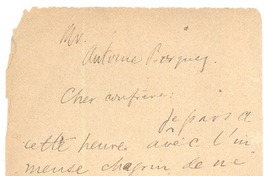 Mr.
Antoine Borquez
Cher confrère:
Je pars à
cette heures avèc l'im
mense chagrin de ne